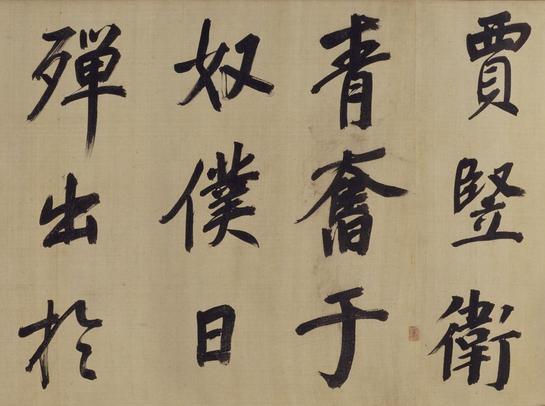 賈竪衛
青奮于
奴僕日
殫出於